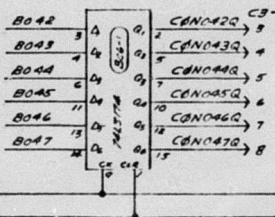 C3-
B042 3 D1 Q1 2 CØN042Q 3
B043 4 D2 Q2 5 CØN043Q 4
B044 6 D3 Q3 7 CØN044Q 5
B045 11 D4 Q4 10 CØN045Q 6
B046 13 D5 Q5 12 CØN046Q 7
B047 14 D6 Q6 15 CØN047Q 8
B16-1
74LS174
CK CLR
9 1